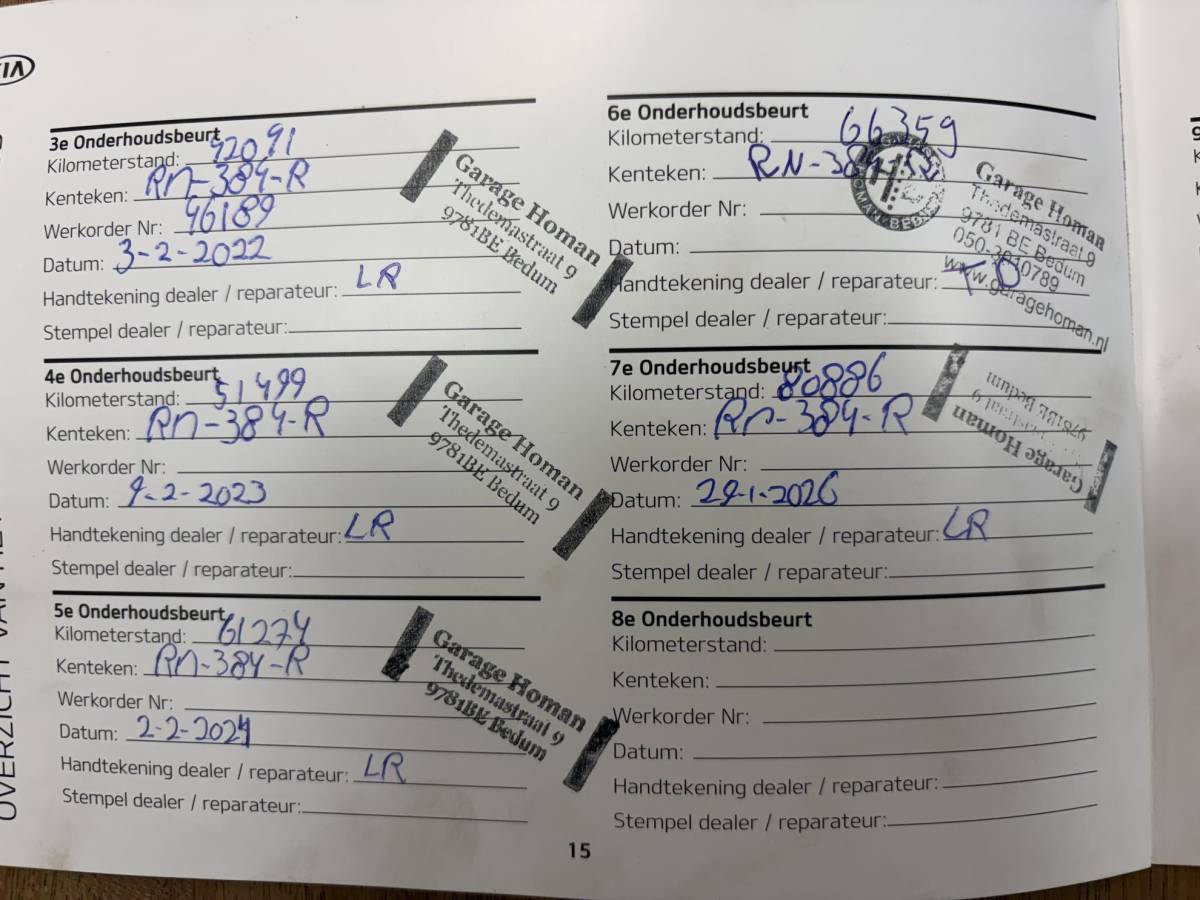 KIA
3e Onderhoudsbeurt
Kilometerstand: 42091
Kenteken: RN-384-R
Werkorder Nr: 46189
Datum: 3-2-2022
Handtekening dealer / reparateur: LR
Stempel dealer / reparateur:
Garage Homan
Thedemastraat 9
9781BE Bedum
4e Onderhoudsbeurt
Kilometerstand: 51499
Kenteken: RN-384-R
Werkorder Nr:
Datum: 9-2-2023
Handtekening dealer / reparateur: LR
Stempel dealer / reparateur:
Garage Homan
Thedemastraat 9
9781BE Bedum
5e Onderhoudsbeurt
Kilometerstand: 61274
Kenteken: RN-384-R
Werkorder Nr:
Datum: 2-2-2024
Handtekening dealer / reparateur: LR
Stempel dealer / reparateur:
Garage Homan
Thedemastraat 9
9781BE Bedum
6e Onderhoudsbeurt
Kilometerstand: 66359
Kenteken: RN-384-R
Werkorder Nr:
Datum:
Handtekening dealer / reparateur: TD
Stempel dealer / reparateur:
Garage Homan
Thedemastraat 9
9781 BE Bedum
050-3010789
www.garagehoman.nl
7e Onderhoudsbeurt
Kilometerstand: 80886
Kenteken: RN-384-R
Werkorder Nr:
Datum: 29-1-2026
Handtekening dealer / reparateur: LR
Stempel dealer / reparateur:
Garage Homan
9781BE Bedum
8e Onderhoudsbeurt
Kilometerstand:
Kenteken:
Werkorder Nr:
Datum:
Handtekening dealer / reparateur:
Stempel dealer / reparateur:
15